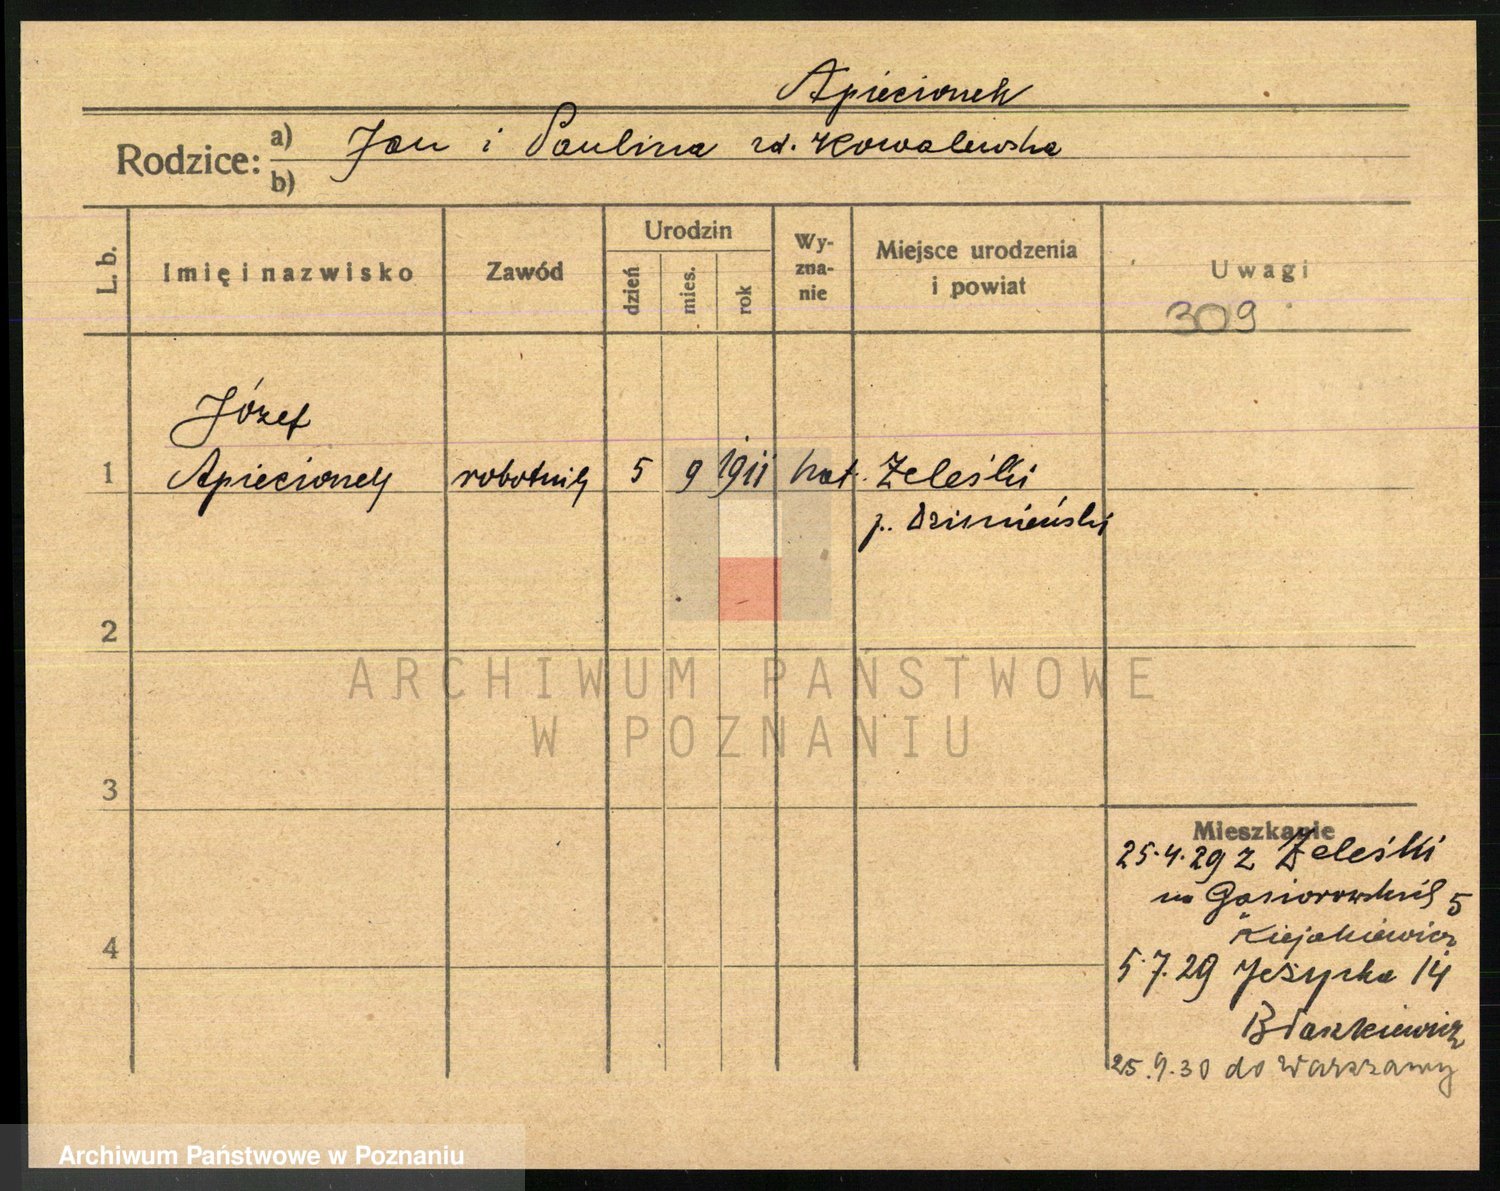 Apiecionek
Rodzice: a) Jan i Paulina zd. Kowalewska
b)
L. b. Imię i nazwisko Zawód Urodzin dzień mies. rok Wy-zna-nie Miejsce urodzenia i powiat Uwagi
309
Józef
1 Apiecionek robotnik 5 9 1911 kat. Zeleśki
p. Dzisnieński
2
ARCHIWUM PAŃSTWOWE
W POZNANIU
3
Mieszkanie
25.4.29 z Zeleśki
na Gąsiorowskich 5
4
5.7.29 Jeżycka 14
Błaszkiewicz
25.9.30 do Warszawy
Archiwum Państwowe w Poznaniu